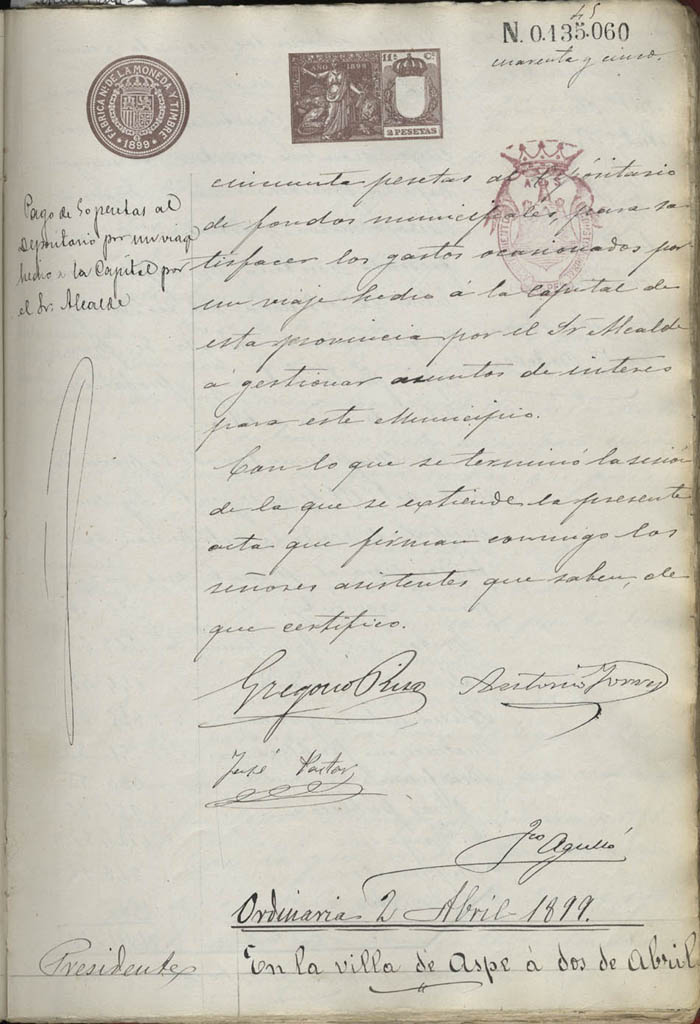 45
N. 0.135.060
cuarenta y cinco.
FÁBRICA Nᴸ DE LA MONEDA Y TIMBRE
1899
AÑO 1899
11ª C.
2 PESETAS
Pago de 50 pesetas al
Depositario por un viaje
hecho a la Capital por
el Sr. Alcalde
cincuenta pesetas al Depositario
de fondos municipales, para sa
tisfacer los gastos ocasionados por
un viaje hecho á la capital de
esta provincia por el Sr Alcalde
á gestionar asuntos de interes
para este Municipio.
Con lo que se terminó la sesion
de la que se extiende la presente
acta que firman conmigo los
señores asistentes que saben, de
que certifico.
Gregorio Antonio
José Pastor
Fco Agulló
Ordinaria 2 Abril 1899.
Presidente
En la villa de Aspe á dos de Abril